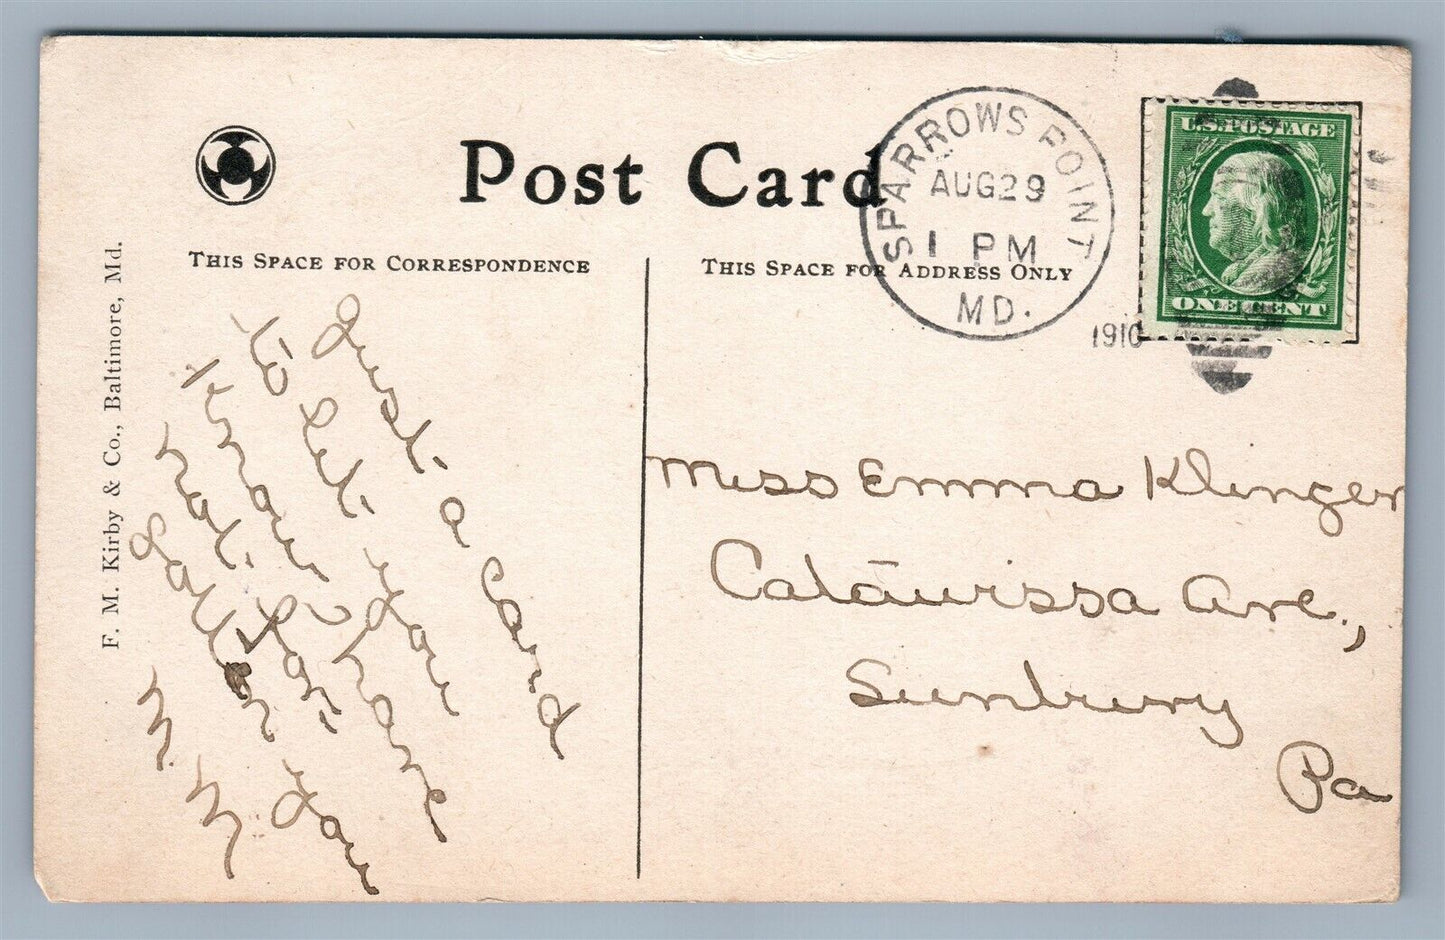 Post Card
THIS SPACE FOR CORRESPONDENCE
THIS SPACE FOR ADDRESS ONLY
F. M. Kirby & Co., Baltimore, Md.
SPARROWS POINT
AUG 29
1 PM
MD.
1910
U.S. POSTAGE
ONE CENT
Just a card
to let you
know I have
not for
gotten you
M. M.
Miss Emma Klinger
Catawissa Ave.,
Sunbury
Pa